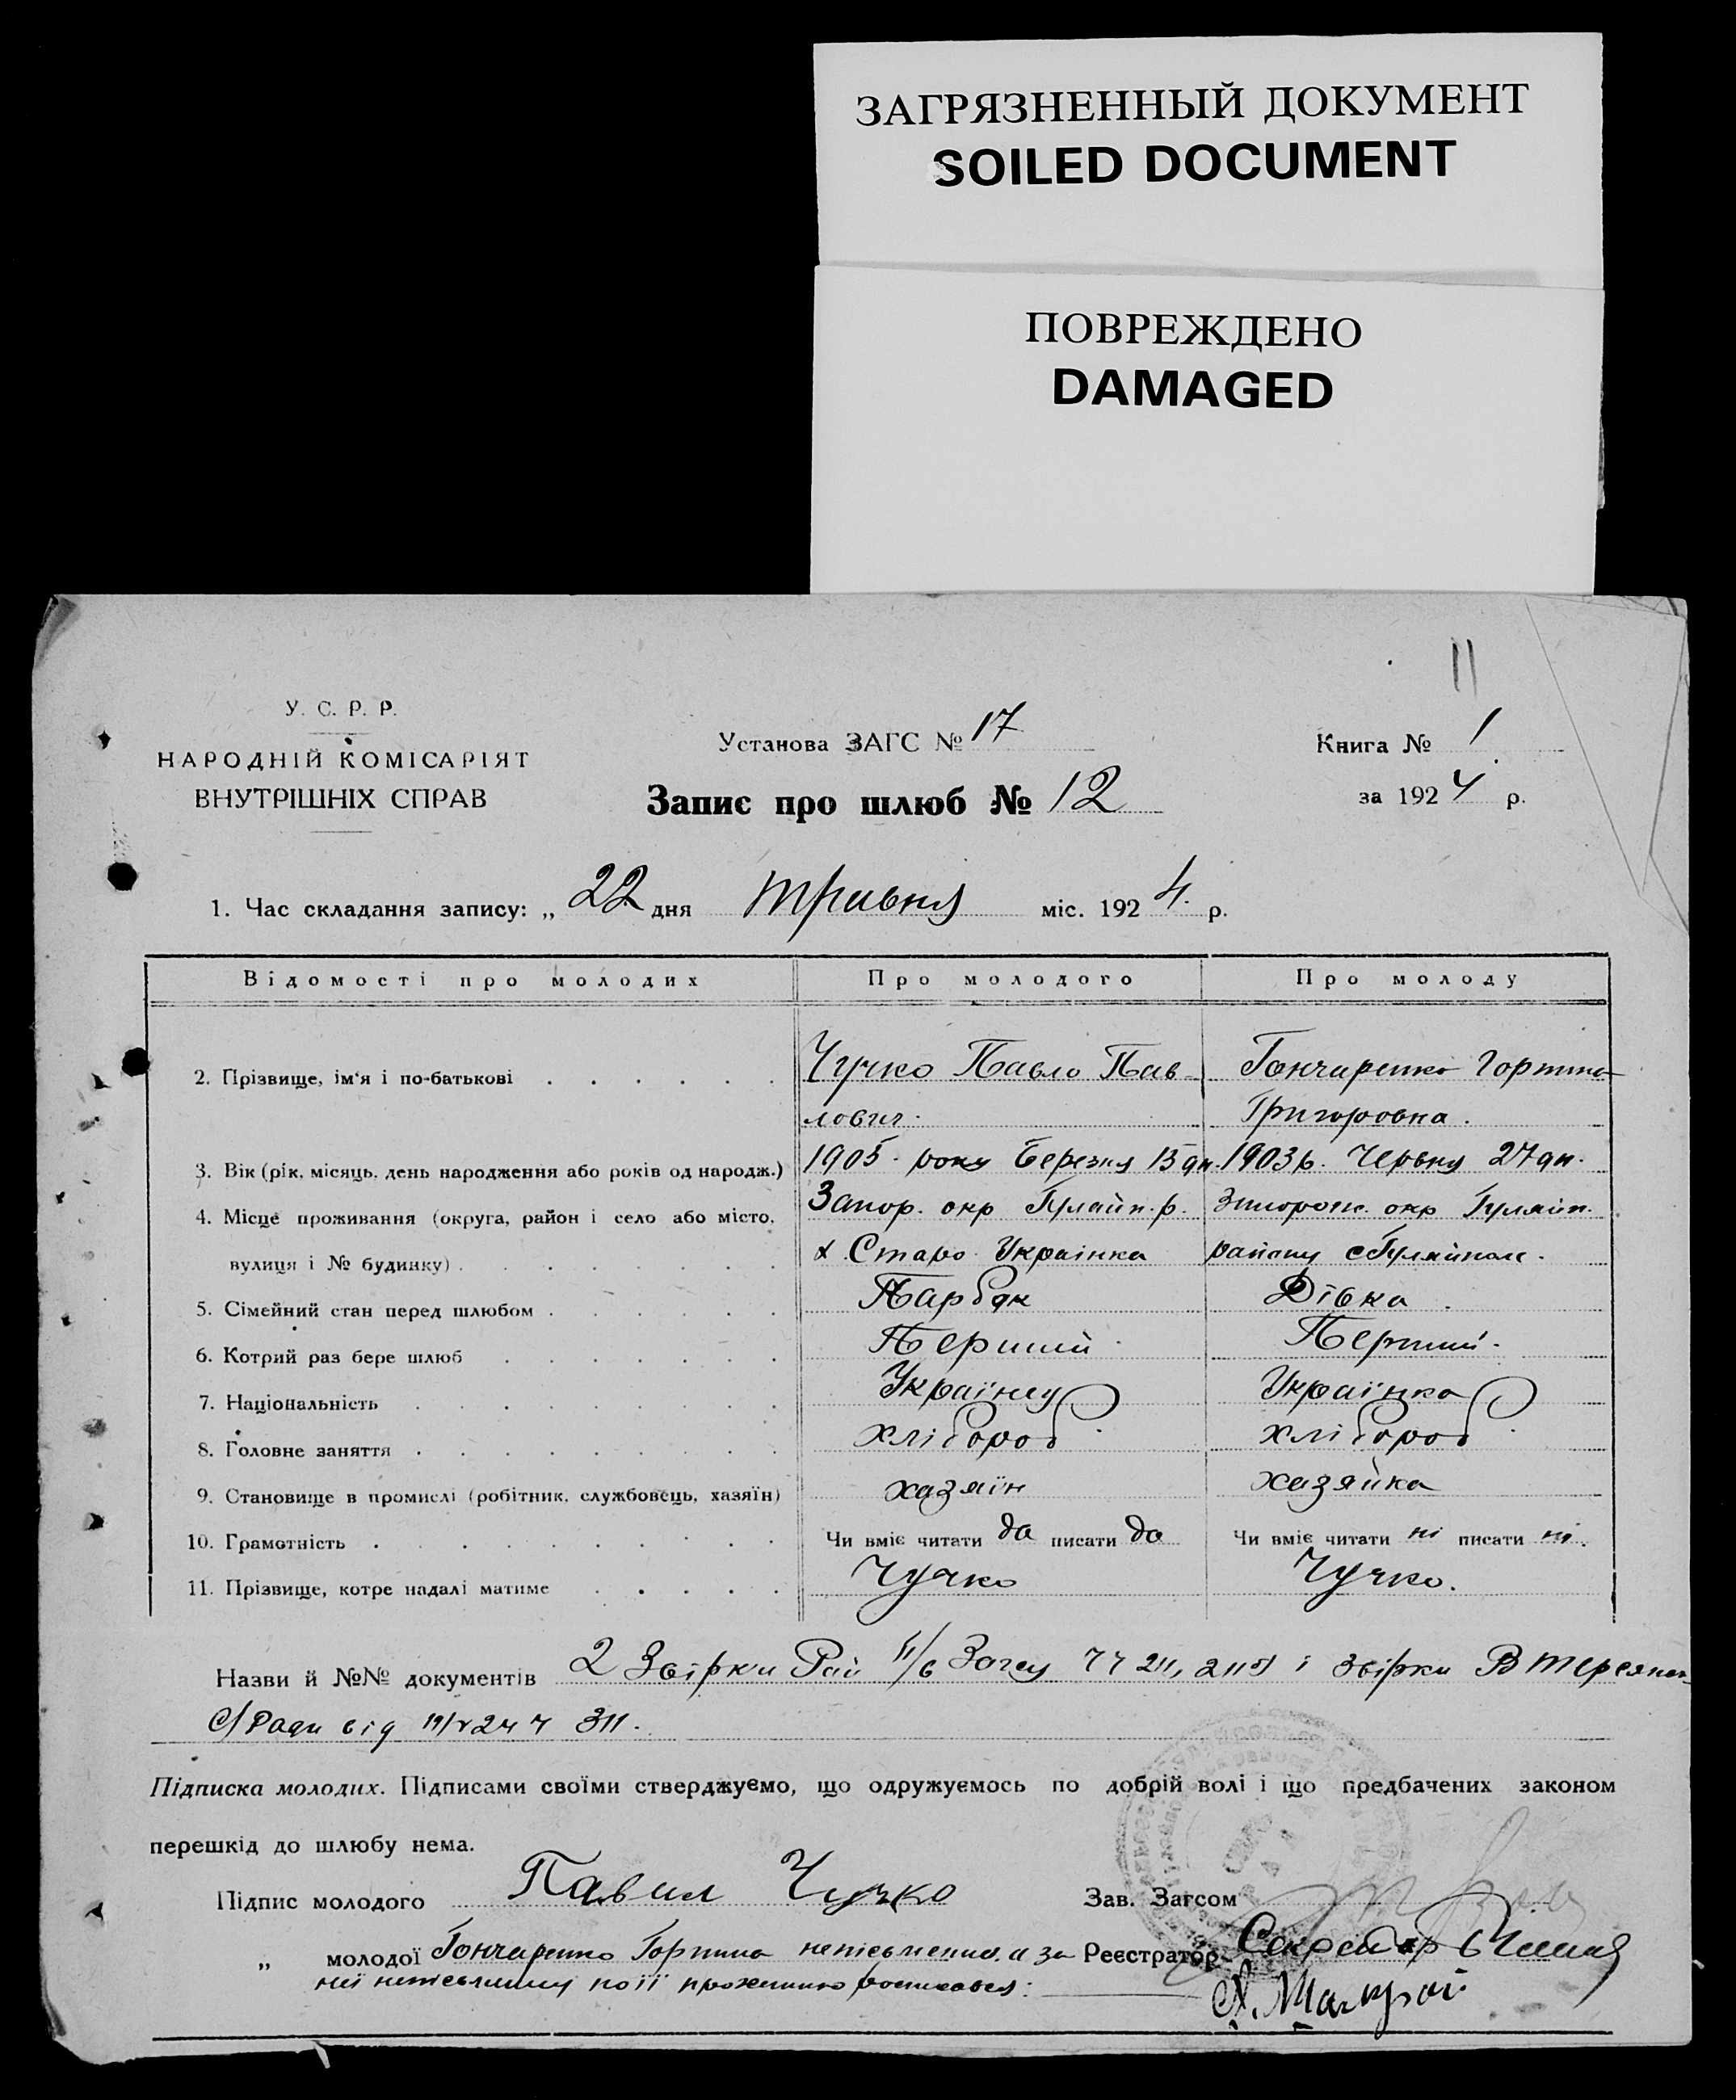 ЗАГРЯЗНЕННЫЙ ДОКУМЕНТ
SOILED DOCUMENT
ПОВРЕЖДЕНО
DAMAGED
11
У. С. Р. Р.
НАРОДНІЙ КОМІСАРІЯТ
ВНУТРІШНІХ СПРАВ
Установа ЗАГС № 17
Запис про шлюб № 12
Книга № 1
за 1924 р.
1. Час складання запису: „ 22 дня травня міс. 1924 р.
Відомості про молодих Про молодого Про молоду
2. Прізвище, ім'я і по-батькові Чучко Павло Пав- Гончаренко Горпина
лович. Григоровна.
3. Вік (рік, місяць, день народження або років од народж.) 1905 року Березня 15 дн. 1903 р. Червня 27 дн.
4. Місце проживання (округа, район і село або місто, Запор. окр Гуляйп. р. Запорож. окр Гуляйп.
вулиця і № будинку) х Старо Українка району с Гуляйполе.
5. Сімейний стан перед шлюбом Парубок Дівка
6. Котрий раз бере шлюб Перший Перший
7. Національність Українец Українка
8. Головне заняття хлібороб хлібороб
9. Становище в промислі (робітник, службовець, хазяїн) хазяїн хазяйка
10. Грамотність Чи вміє читати да писати да Чи вміє читати ні писати ні.
11. Прізвище, котре надалі матиме Чучко Чучко.
Назви й №№ документів 2 Звірки Рай Загсу 211, і звірки
С/Ради від 311.
Підписка молодих. Підписами своїми стверджуємо, що одружуємось по добрій волі і що предбачених законом
перешкід до шлюбу нема.
Підпис молодого Павил Чучко Зав. Загсом
„ молодої Гончаренко Горпина неписьменна, а за Реєстратор Секретар
неї неписьменну по її проханню росписався: